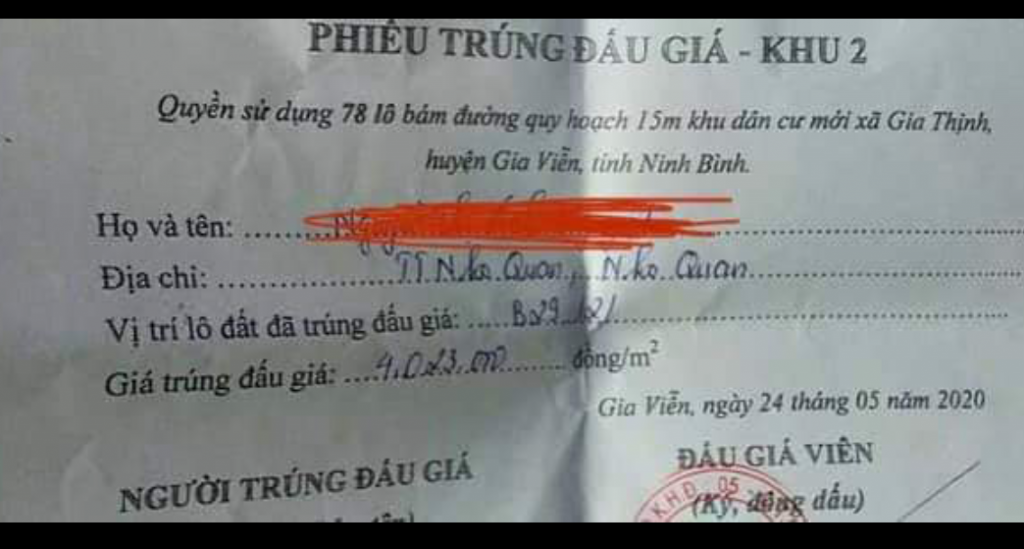 PHIẾU TRÚNG ĐẤU GIÁ - KHU 2
Quyền sử dụng 78 lô bám đường quy hoạch 15m khu dân cư mới xã Gia Thịnh,
huyện Gia Viễn, tỉnh Ninh Bình.
Họ và tên:
Địa chỉ: TT. Nho Quan, Nho Quan
Vị trí lô đất đã trúng đấu giá:
Giá trúng đấu giá: đồng/m²
Gia Viễn, ngày 24 tháng 05 năm 2020
NGƯỜI TRÚNG ĐẤU GIÁ
ĐẤU GIÁ VIÊN
(Ký, đóng dấu)